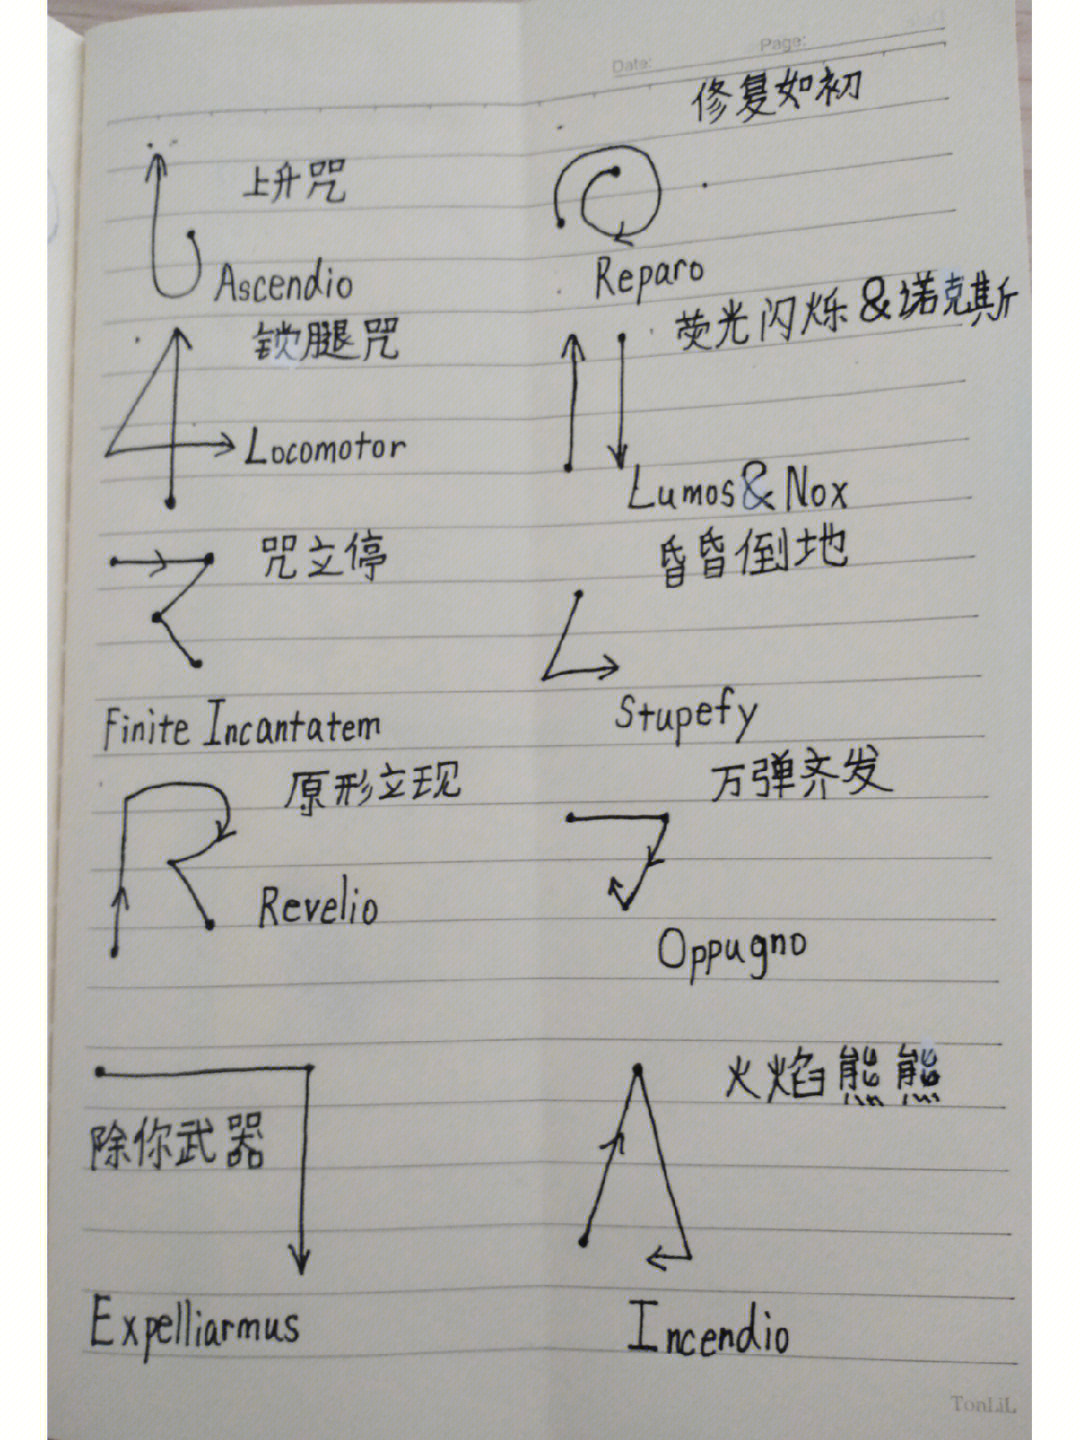 Date:
Page:
上升咒
Ascendio
修复如初
Reparo
锁腿咒
Locomotor
荧光闪烁&诺克斯
Lumos&Nox
咒立停
Finite Incantatem
昏昏倒地
Stupefy
原形立现
Revelio
万弹齐发
Oppugno
除你武器
Expelliarmus
火焰熊熊
Incendio
TonLiL